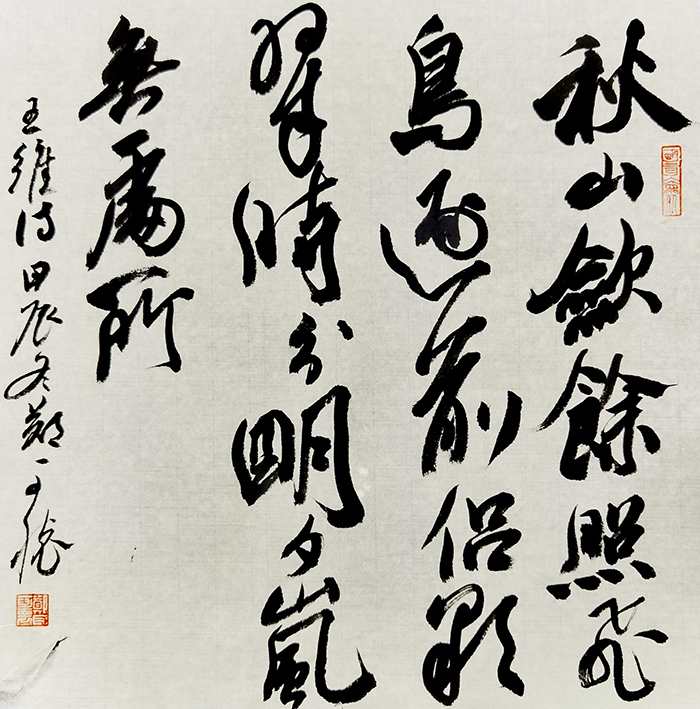 秋山歛餘照飛
鳥逐前侶彩
翠時分明夕嵐
無處所
王維诗甲辰冬鄭